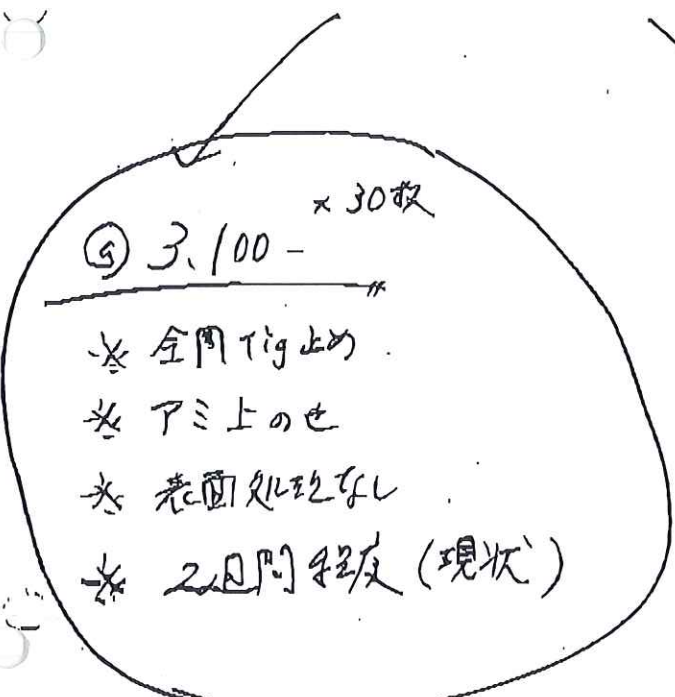 × 30枚
@ 3.100 -
※ 全周Tig止め
※ アミ上のせ
※ 表面処理なし
※ 2週間程度 (現状)